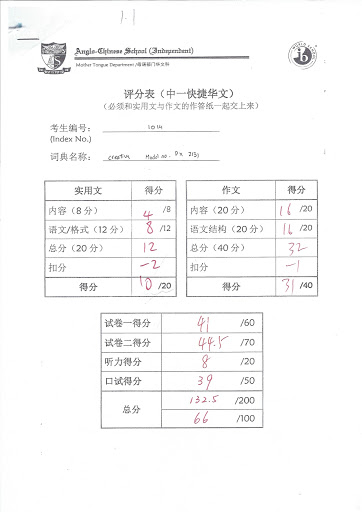 1.1
Anglo-Chinese School (Independent)
Mother Tongue Department /母语部门华文科
评分表（中一快捷华文）
（必须和实用文与作文的作答纸一起交上来）
考生编号： 1014
(Index No.)
词典名称： creative Model no. Px 2131
实用文 得分
内容（8 分） 4 /8
语文/格式（12 分） 8 /12
总分（20 分） 12
扣分 -2
得分 10 /20
作文 得分
内容（20 分） 16 /20
语文结构（20 分） 16 /20
总分（40 分） 32
扣分 -1
得分 31 /40
试卷一得分 41 /60
试卷二得分 44.5 /70
听力得分 8 /20
口试得分 39 /50
总分 132.5 /200
66 /100